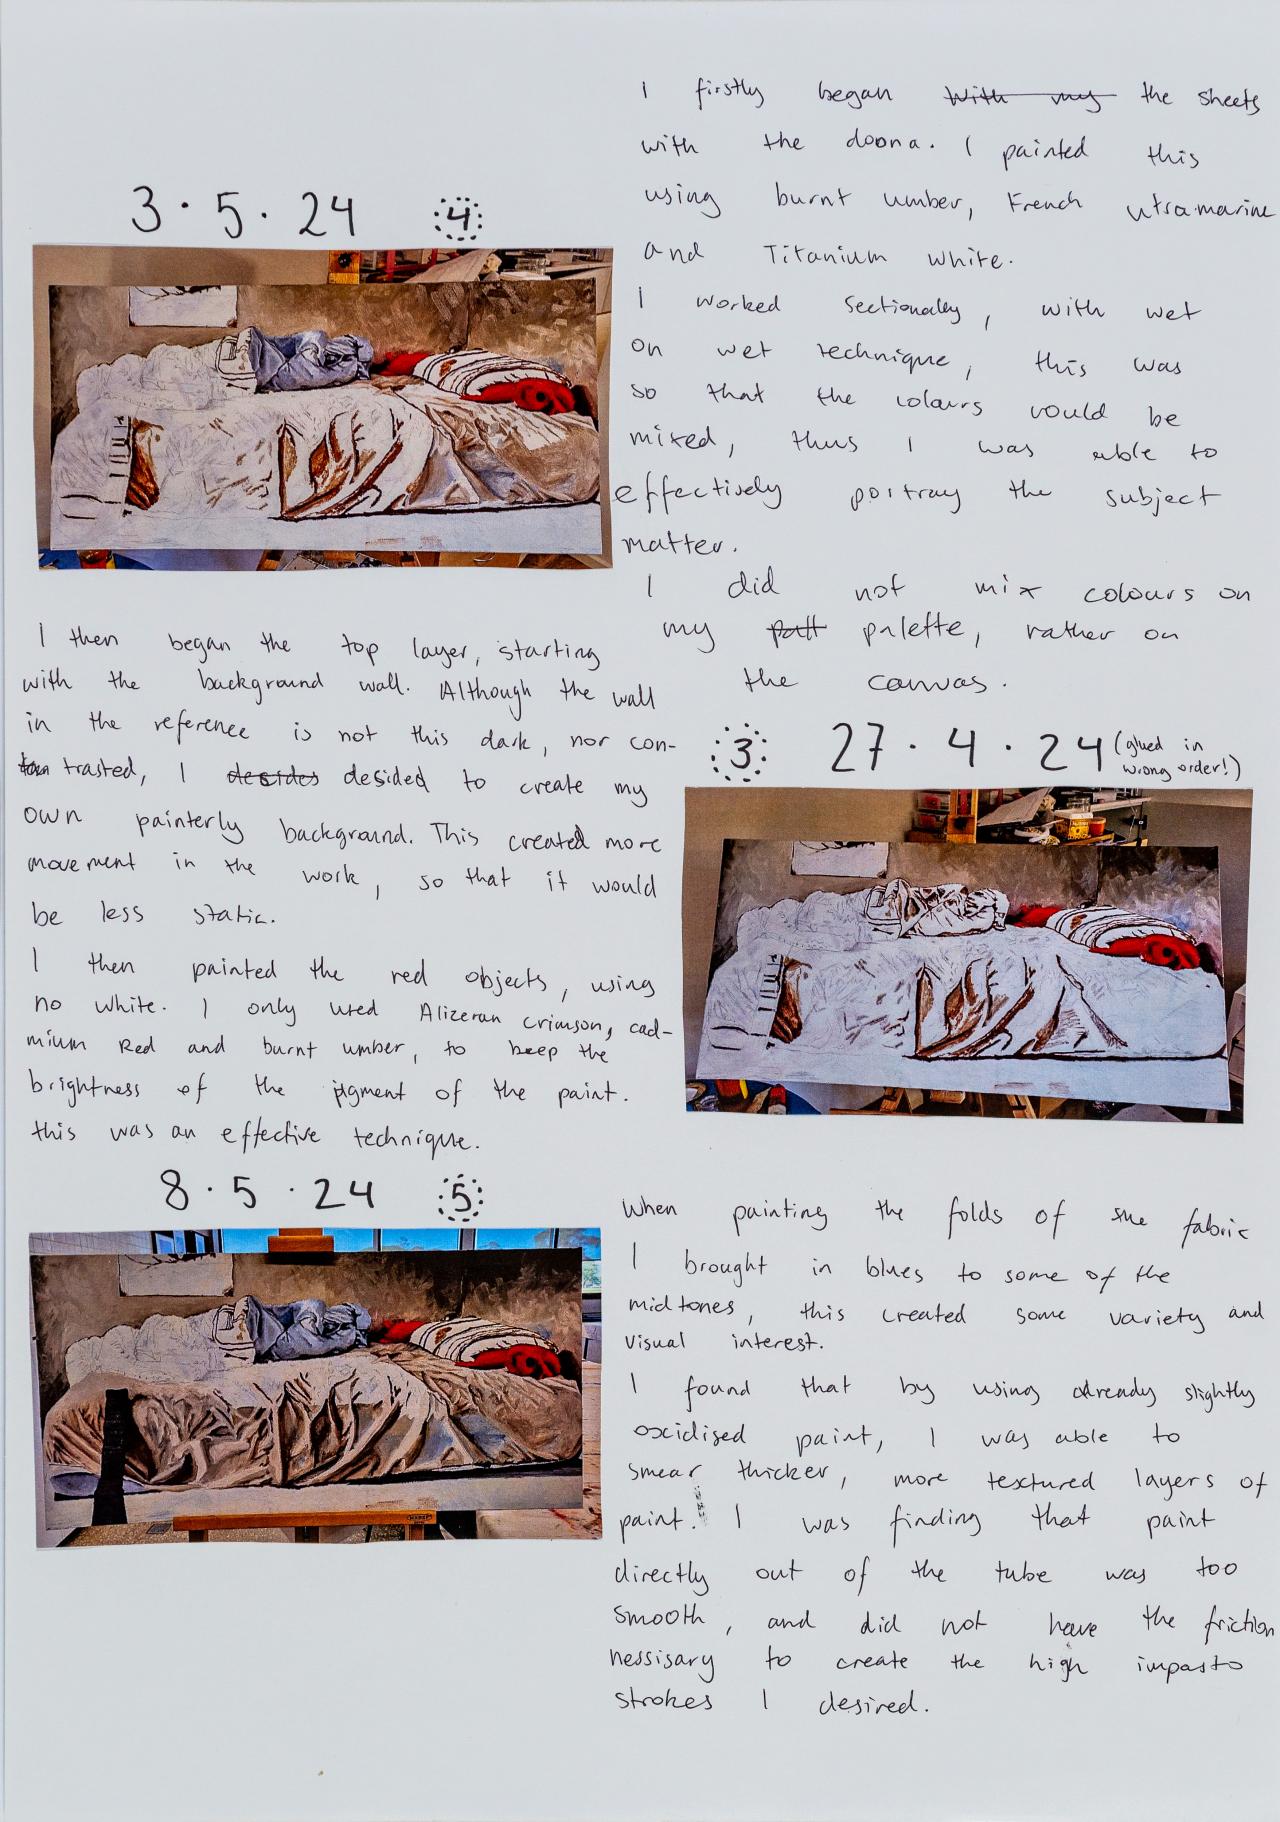 3·5·24 4
I firstly began with my the sheets
with the doona. I painted this
using burnt umber, French utramarine
and Titanium white.
I worked sectionally, with wet
on wet technique, this was
so that the colours would be
mixed, thus I was able to
effectively portray the subject
matter.
I did not mix colours on
my patt palette, rather on
the canvas.
3 27·4·24 (glued in
wrong order!)
I then began the top layer, starting
with the background wall. Although the wall
in the reference is not this dark, nor con-
trasted, I desides desided to create my
own painterly background. This created more
movement in the work, so that it would
be less static.
I then painted the red objects, using
no white. I only used Alizeran crimson, cad-
mium Red and burnt umber, to keep the
brightness of the pigment of the paint.
this was an effective technique.
8·5·24 5
When painting the folds of the fabric
I brought in blues to some of the
midtones, this created some variety and
visual interest.
I found that by using already slightly
oxidised paint, I was able to
smear thicker, more textured layers of
paint. I was finding that paint
directly out of the tube was too
smooth, and did not have the friction
nessisary to create the high impasto
strokes I desired.